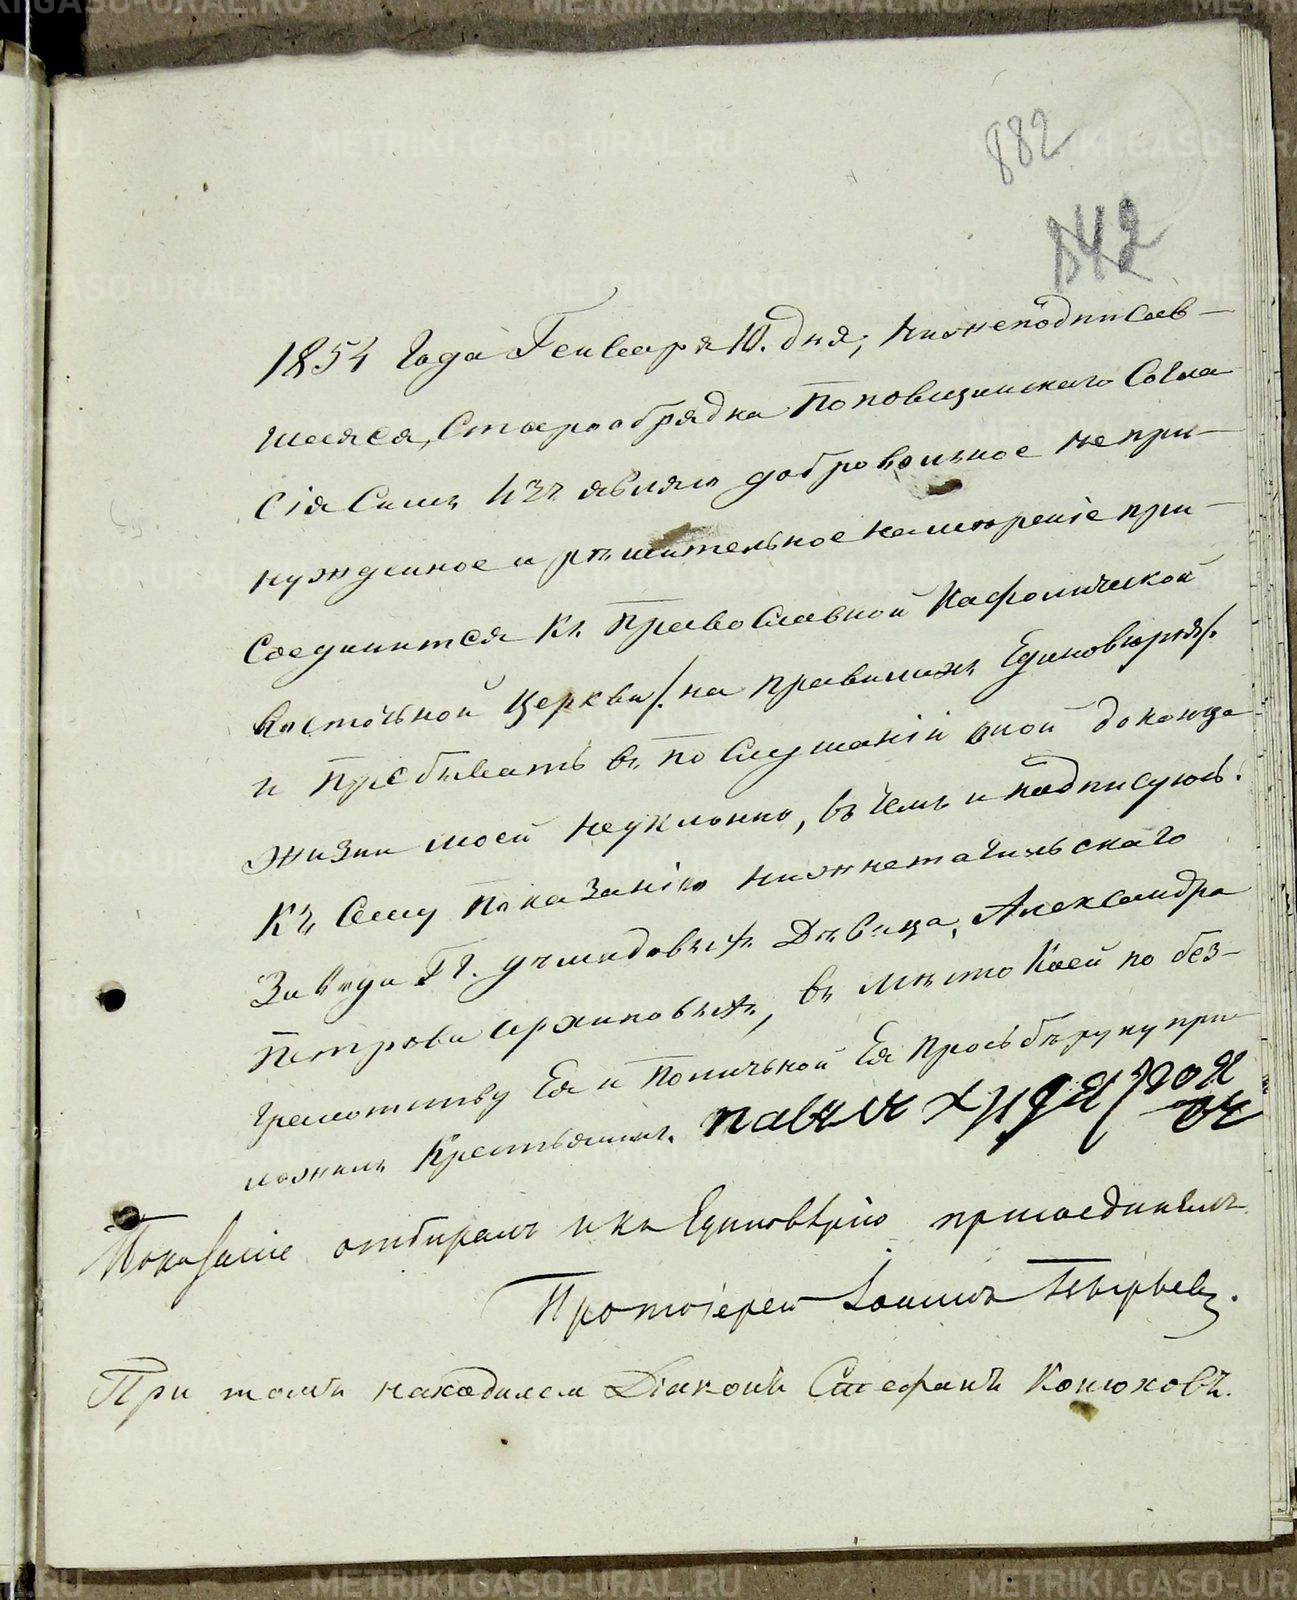 882
142
1854 Года Генваря 10. дня; Нижеподписав-
шаяся, Старообрядка Поповщинскаго Согла
сія Симъ Изъявляю добровольное непри-
нужденное и рѣшительное намѣреніе при-
соединится къ Православной Кафолической
восточной Церкви /на правилахъ Единовѣрія/.
и Пребывать въ послушаніи оной до конца
жизни моей неуклонно, въ чемъ и подписуюсь.
Къ Сему Показанію Нижнетагильскаго
Завода Гг. Демидовыхъ Дѣвица, Александра
Петрова Архиповыхъ, въ мѣсто коей по без-
грамотству Ея и Поличьной Ея Просьбѣ руку при-
ложилъ Крестьянинъ. павелъ худая
Показаніе отбиралъ и къ Единовѣрію присоединялъ
Протоіерей Іоаннъ
При томъ находился Діаконъ Стефанъ Конюховъ.
METRIKI.GASO-URAL.RU